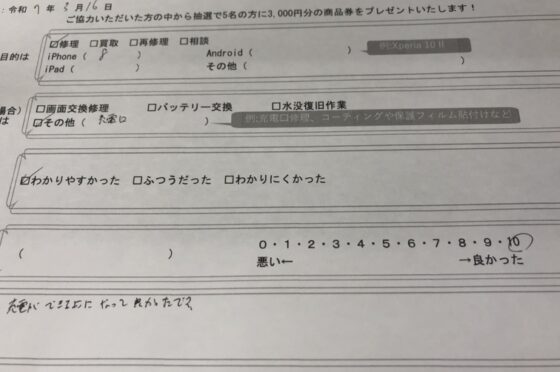 ：令和 7 年 3 月 16 日
ご協力いただいた方の中から抽選で5名の方に3,000円分の商品券をプレゼントいたします！
目的は
☑修理 □買取 □再修理 □相談
iPhone ( 8 ) Android ( ) 例:Xperia 10 II
iPad ( ) その他 ( )
場合)
は
□画面交換修理 □バッテリー交換 □水没復旧作業
☑その他 ( 充電口 ) 例:充電口修理、コーティングや保護フィルム貼付けなど
☑わかりやすかった □ふつうだった □わかりにくかった
0・1・2・3・4・5・6・7・8・9・10
( ) 悪い← →良かった
充電ができるようになって良かったです。